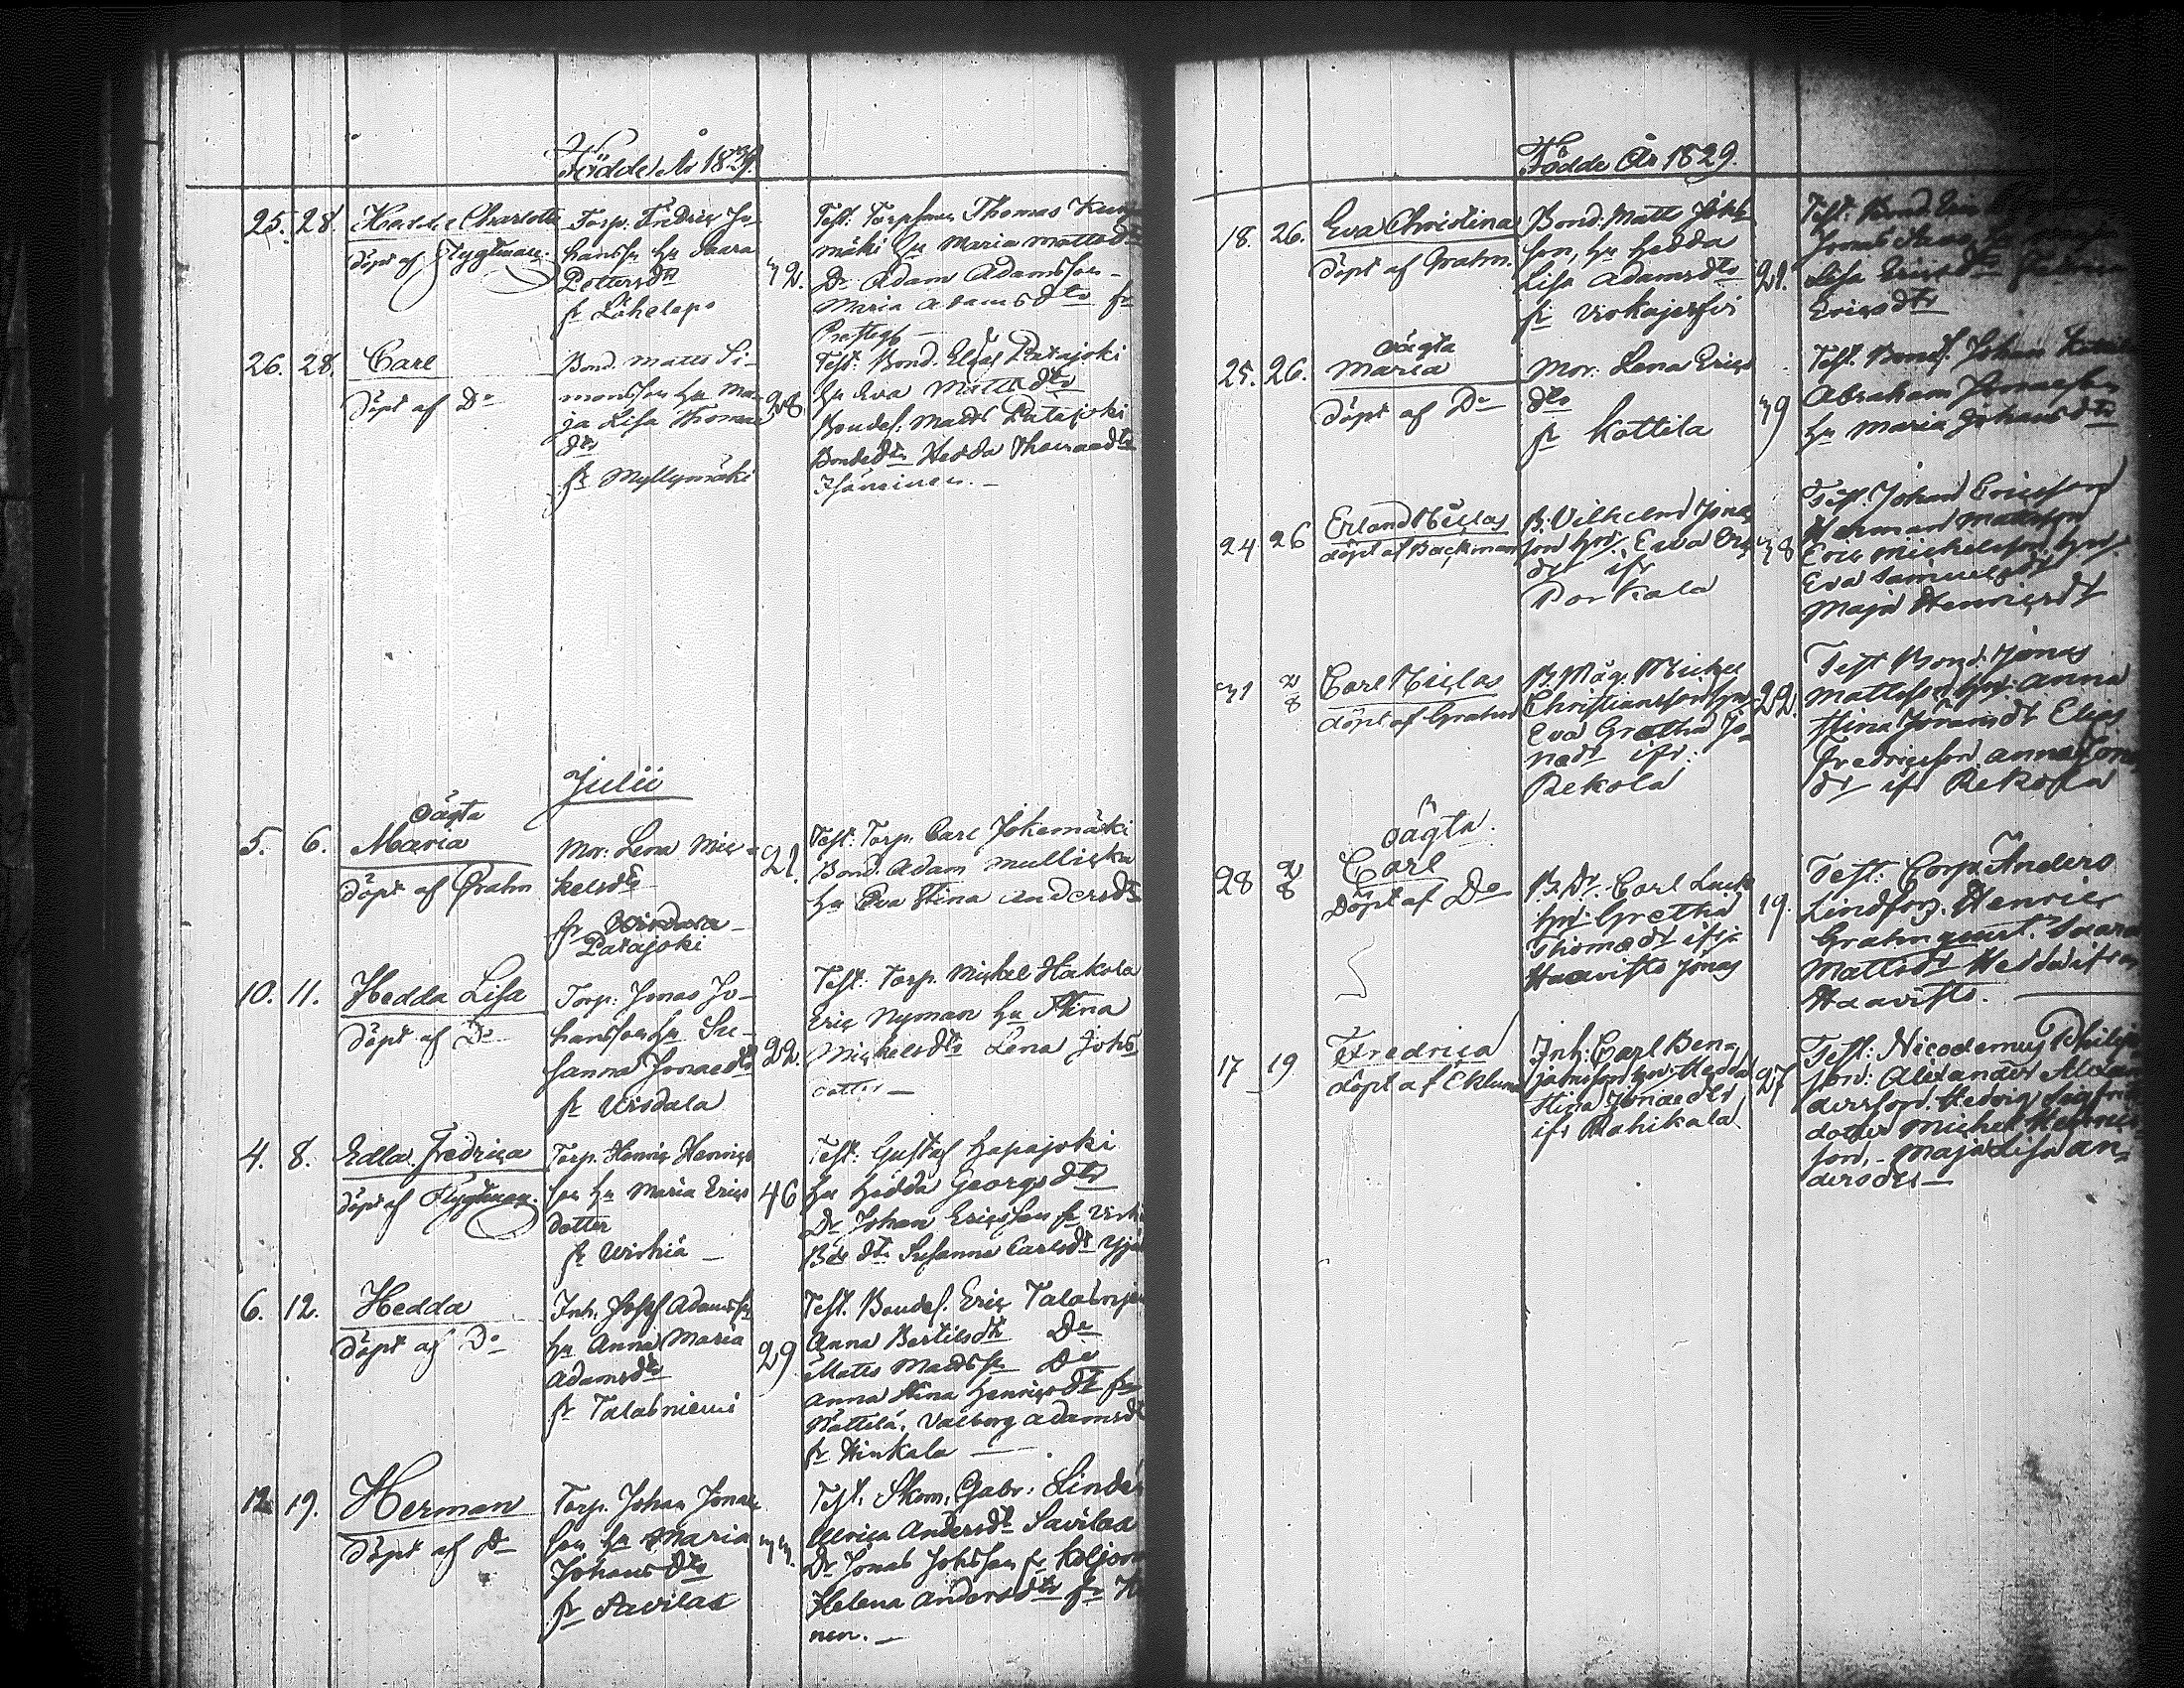 Födde År 1829.
25. 28. Hedda Charlotta
döpt af Flygtman.
Torp. Fredric Jo-
hansson hu Saara
Pettersdtr
fr Lähelepo
32.
Test. Torpman Thomas
mäki hu Maria Mattsdtr
Dr Adam Adamsson -
Maria Adamsdtr fr
Prestegb -
26. 28. Carl
döpt af Do
Bond. Matts Si-
monsson hu Ma-
ja Lisa Thomas
dtr
fr Myllymäki
28
Test. Bond. Elias Patajoki
hu Eva Mattsdtr
Bondes. Matts Patajoki
Bondedtr Hedda Thomasdtr
Julii
5. 6. oägta
Maria
döpt af Grahn
Mor: Lena Mic-
kelsdtr
fr
Patajoki
21.
Test. Torp. Carl Jokemäki
Bond. Adam Mullicka
hu Eva Stina Andersdtr
10. 11. Hedda Lisa
döpt af Do
Torp: Jonas Jo-
hansson hu Su-
sanna Jonaedtr
fr Wirdala
22.
Test: Torp. Mickel Hakola
Eric Nyman hu Stina
Mickelsdtr Lena Johs
dotter -
4. 8. Edla Fredrica
döpt af Flygtman.
Torp. Henric Henrics
son hu Maria Erics
dotter
fr Wirkiä -
46
Test: Gustaf Hapajoki
hu Hedda Georgsdtr
Dr Johan Ericsson fr
Bde dtr Susanna Carlsdtr
6. 12. Hedda
döpt af Do
Inh. Josef Adamsson
hu Anna Maria
Adamsdtr
fr Talasniemi
29
Test. Bondes. Eric
Anna Bertilsdtr Do
Matts Mattsson Do
Anna Stina Henricsdtr fr
Mattila. Valborg Adamsdtr
fr Hinkala -
12 19. Herman
döpt af Do
Torp. Johan Jonas
son hu Maria
Johansdtr
fr Savilax
33.
Test. Skom. Gabr. Lindén
Ulrica Andersdtr Savilax
Dr Jonas Johsson fr
Helena Andersdtr fr
nen. -
Födde År 1829.
18. 26. Eva Christina
döpt af Grahn.
Bond: Matts Johs
son, hu Hedda
Lisa Adamsdtr
fr Virkajerfvi
21.
Test. Bond.
Jonas
Lisa Ericsdtr
Ericsdtr
25. 26. oägta
Maria
döpt af Do
Mor: Lena Erics
dtr
fr Kottila
39
Test. Bond. Johan
Abraham
hu Maria Johansdtr
24. 26 Erland Niclas
döpt af Backman
B. Vilhelm Jonas
son hus: Eva Erics
dt ifr
Porkala
38
Test. Johan Ericsson
Herman Mattsson
Eric Mickelsson hus.
Eva Samuelsdt
Maja Henricsdt
31 2/8 Carl Niclas
döpt af Grahn
B. Måg. Mickel
Christiansson hus
Eva Gretha Jo-
nadt ifr:
Rekola
22.
Test Bond. Jonas
Mattsson hus: Anna
Stina Johansdt Elias
Fredricsson Anna Jona
dt ifr Rekola
28 2/8 oägta.
Carl
Döpt af Do
B. Dr. Carl
hus: Gretha
Thomasdt ifr
Haavisto Jonas
19.
Test: Corp. Anders
Lindfors. Henric
Grahnqvist. Saara
Mattsdt Hedda ifr
Haavisto.
17 19 Fredrica
döpt af Eklund
Inh: Carl Ben-
jamsson hus: Hedda
Stina Jonaedtr
ifr Rahikala
27
Test: Nicodemus Philips
son: Alexander Alexan
dersson. Hedvig Sigfrids
dotter Michel Henrics
son, - Maja Lisa An-
dersdtr -